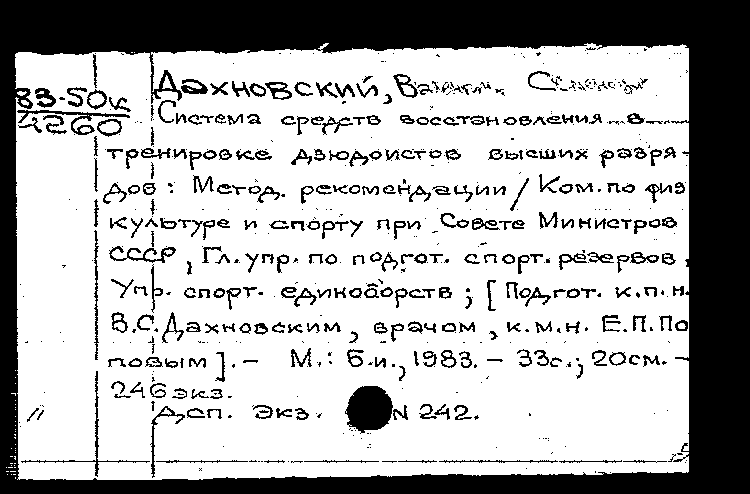 83-50к
4260
Дахновский, Валентин Семенович
Система средств восстановления в
тренировке дзюдоистов высших разря-
дов: Метод. рекомендации / Ком. по физ
культуре и спорту при Совете Министров
СССР, Гл. упр. по подгот. спорт. резервов,
Упр. спорт. единоборств; [Подгот. к.п.н.
В.С. Дахновским, врачом, к.м.н. Е.П. По
повым]. - М.: Б.и., 1983. - 33с.; 20см. -
246 экз.
Дсп. Экз. N 242.